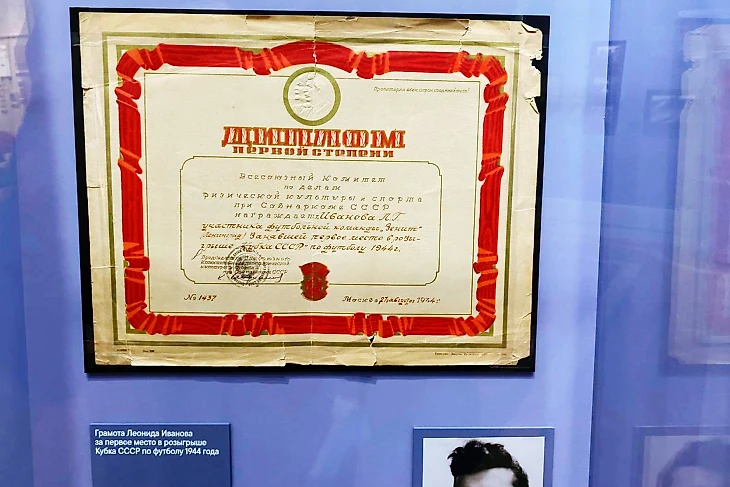 Пролетарии всех стран, соединяйтесь!
ДИПЛОМ
ПЕРВОЙ СТЕПЕНИ
Всесоюзный Комитет
по делам
физической культуры и спорта
при Совнаркоме СССР
награждает Иванова Л.Г.
участника футбольной команды „Зенит"
Ленинград, занявшей первое место в розы-
грыше „Кубка СССР" по футболу 1944 г.
№ 1437
Москва 27 августа 1944 г.
Грамота Леонида Иванова
за первое место в розыгрыше
Кубка СССР по футболу 1944 года